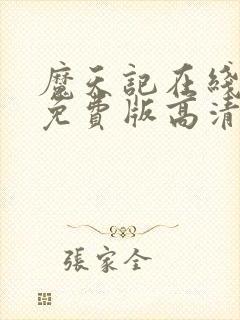 魔天記在綫
免費版高清
張家全